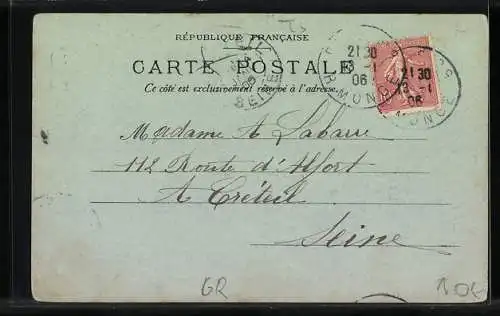 RÉPUBLIQUE FRANÇAISE
CARTE POSTALE
Ce côté est exclusivement réservé à l'adresse.
21 30
13 - 1
06
21 30
13 - 1
06
Madame A Labarre
112 Route d'Alfort
A Créteil
Seine
GR